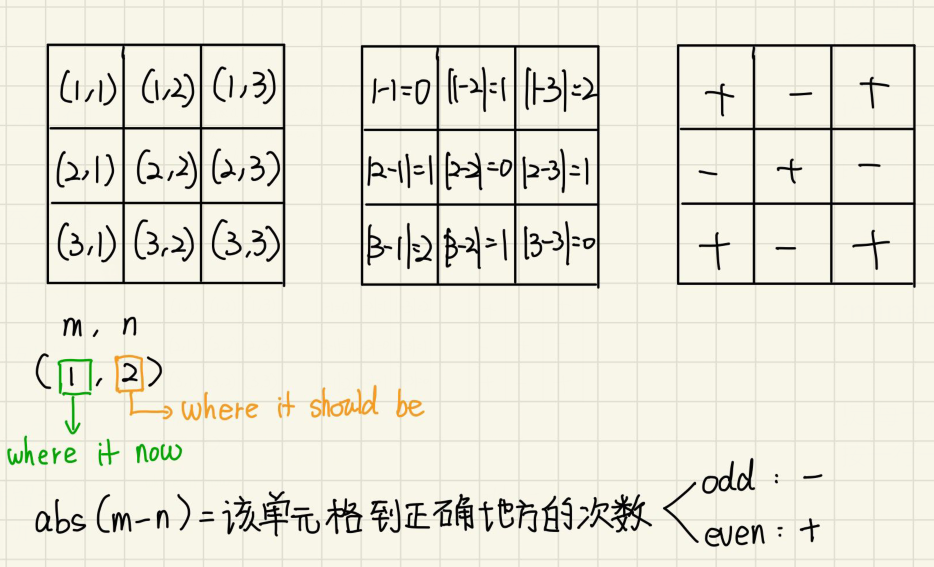 (1,1) (1,2) (1,3)
(2,1) (2,2) (2,3)
(3,1) (3,2) (3,3)
1-1=0 |1-2|=1 |1-3|=2
|2-1|=1 |2-2|=0 |2-3|=1
|3-1|=2 |3-2|=1 |3-3|=0
+ - +
- + -
+ - +
m, n
(1, 2)
where it should be
where it now
abs(m-n)=该单元格到正确地方的次数
odd: -
even: +